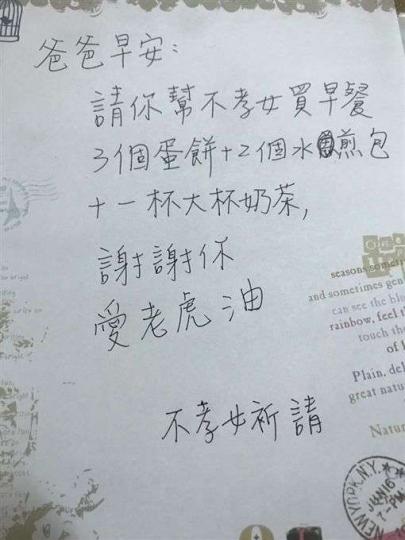 爸爸早安：
請你幫不孝女買早餐
3個蛋餅+2個水煎包
+一杯大杯奶茶，
謝謝你
愛老虎油
不孝女祈請
seasons
and sometimes
can see the
rainbow, feel
touch the
of
Plain,
great
Natur
NEW YORK, N.Y.
JUN 16
-PM